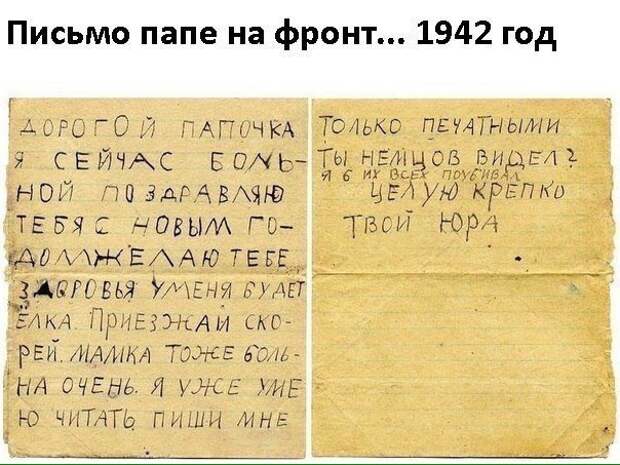 Письмо папе на фронт... 1942 год
ДОРОГОЙ ПАПОЧКА
Я СЕЙЧАС БОЛЬ-
НОЙ ПОЗДРАВЛЯЮ
ТЕБЯ С НОВЫМ ГО-
ДОМ ЖЕЛАЮ ТЕБЕ
ЗДОРОВЬЯ У МЕНЯ БУДЕТ
ЁЛКА. ПРИЕЗЖАЙ СКО-
РЕЙ. МАМКА ТОЖЕ БОЛЬ-
НА ОЧЕНЬ. Я УЖЕ УМЕ
Ю ЧИТАТЬ ПИШИ МНЕ
ТОЛЬКО ПЕЧАТНЫМИ
ТЫ НЕМЦОВ ВИДЕЛ?
Я Б ИХ ВСЕХ ПОУБИВАЛ
ЦЕЛУЮ КРЕПКО
ТВОЙ ЮРА